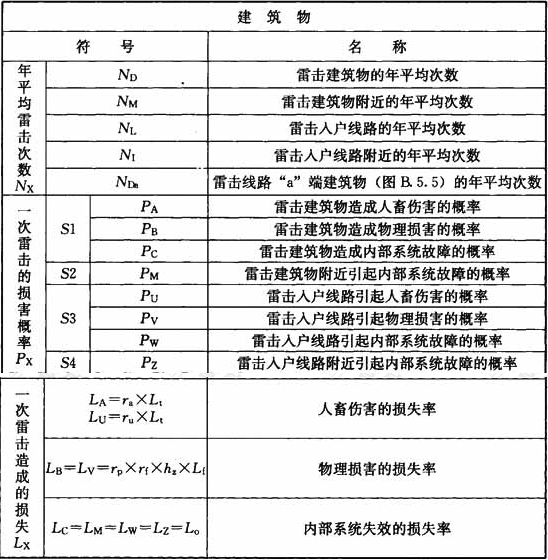 建筑物
符号 名称
年平均雷击次数 N_X
N_D 雷击建筑物的年平均次数
N_M 雷击建筑物附近的年平均次数
N_L 雷击入户线路的年平均次数
N_I 雷击入户线路附近的年平均次数
N_Da 雷击线路“a”端建筑物（图B.5.5）的年平均次数
一次雷击的损害概率 P_X
S1
P_A 雷击建筑物造成人畜伤害的概率
P_B 雷击建筑物造成物理损害的概率
P_C 雷击建筑物造成内部系统故障的概率
S2 P_M 雷击建筑物附近引起内部系统故障的概率
S3
P_U 雷击入户线路引起人畜伤害的概率
P_V 雷击入户线路引起物理损害的概率
P_W 雷击入户线路引起内部系统故障的概率
S4 P_Z 雷击入户线路附近引起内部系统故障的概率
一次雷击造成的损失 L_X
L_A=r_a×L_t
L_U=r_u×L_t
人畜伤害的损失率
L_B=L_V=r_p×r_f×h_z×L_f 物理损害的损失率
L_C=L_M=L_W=L_Z=L_o 内部系统失效的损失率